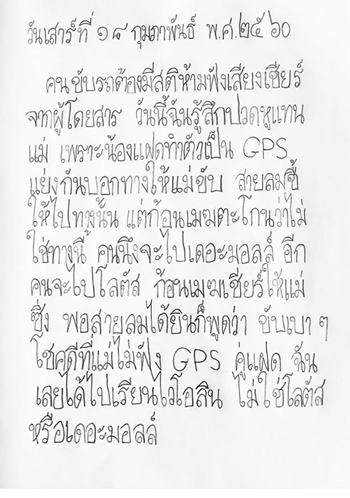 วันเสาร์ที่ ๑๘ กุมภาพันธ์ พ.ศ.๒๕๖๐
คนขับรถต้องมีสติห้ามฟังเสียงเชียร์
จากผู้โดยสาร วันนี้ฉันรู้สึกปวดหูแทน
แม่ เพราะน้องแฝดทำตัวเป็น GPS
แย่งกันบอกทางให้แม่ขับ สายลมชี้
ให้ไปทางนั้น แต่ก้อนเมฆตะโกนว่าไม่
ใช่ทางนี้ คนนึงจะไปเดอะมอลล์ อีก
คนจะไปโลตัส ก้อนเมฆเชียร์ให้แม่
ซิ่ง พอสายลมได้ยินก็พูดว่า ขับเบาๆ
โชคดีที่แม่ไม่ฟัง GPS คู่แฝด ฉัน
เลยได้ไปเรียนไวโอลิน ไม่ใช่โลตัส
หรือเดอะมอลล์